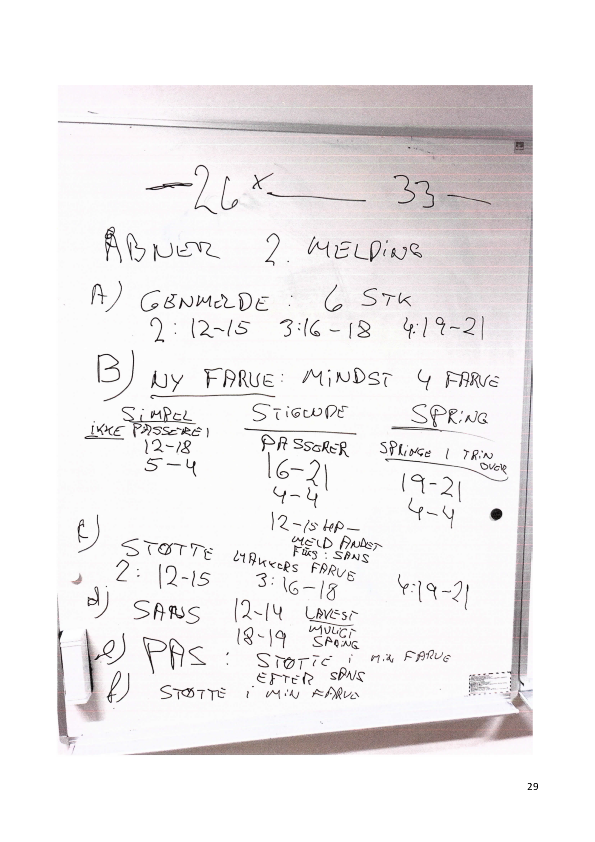 26 x 33
ÅBNER 2. MELDING
A) GENMELDE : 6 STK
2: 12-15 3:16-18 4:19-21
B) NY FARVE: MINDST 4 FARVE
SIMPEL STIGENDE SPRING
IKKE PASSERE! PASSERER SPRINGE 1 TRIN OVER
12-18 16-21 19-21
5-4 4-4 4-4
12-15 HP -
MELD ANDET
: SANS
c) STØTTE MAKKERS FARVE
2: 12-15 3:16-18 4:19-21
d) SANS 12-14 LAVEST
18-19 MULIGT
SPRING
e) PAS : STØTTE i MIN FARVE
EFTER SANS
f) STØTTE i MIN FARVE
29